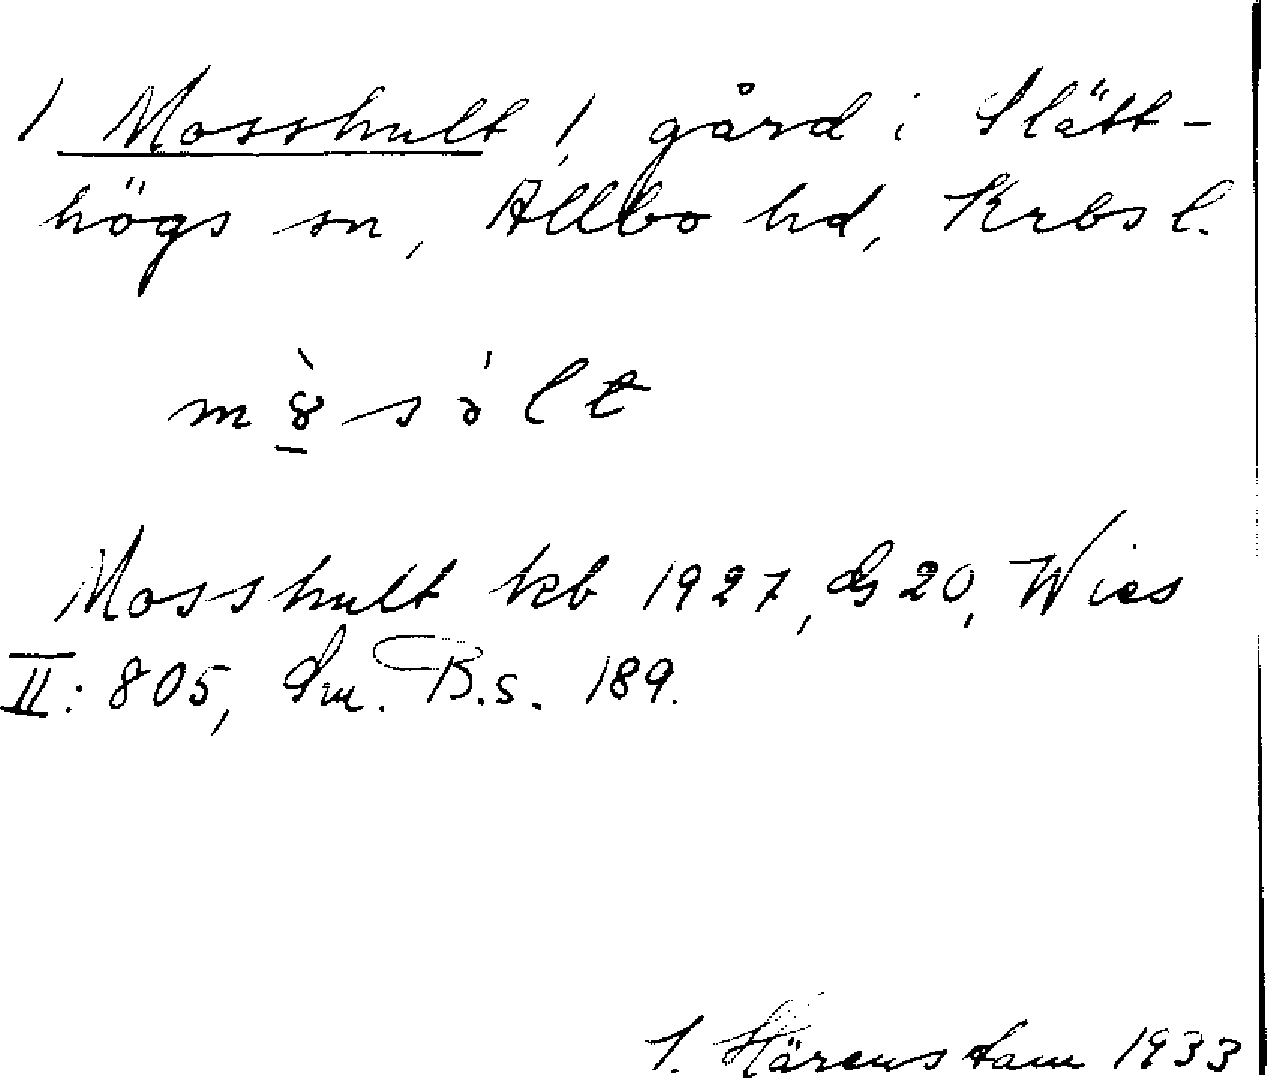 / Mosshult /, gård i Slätt-
högs sn, Allbo hd, Krbs l.
m 8̠̀ s ə́ l t
Mosshult kb 1927, GS 20, Wies
II: 805, Sm. B.s. 189.
Härenstam 1933